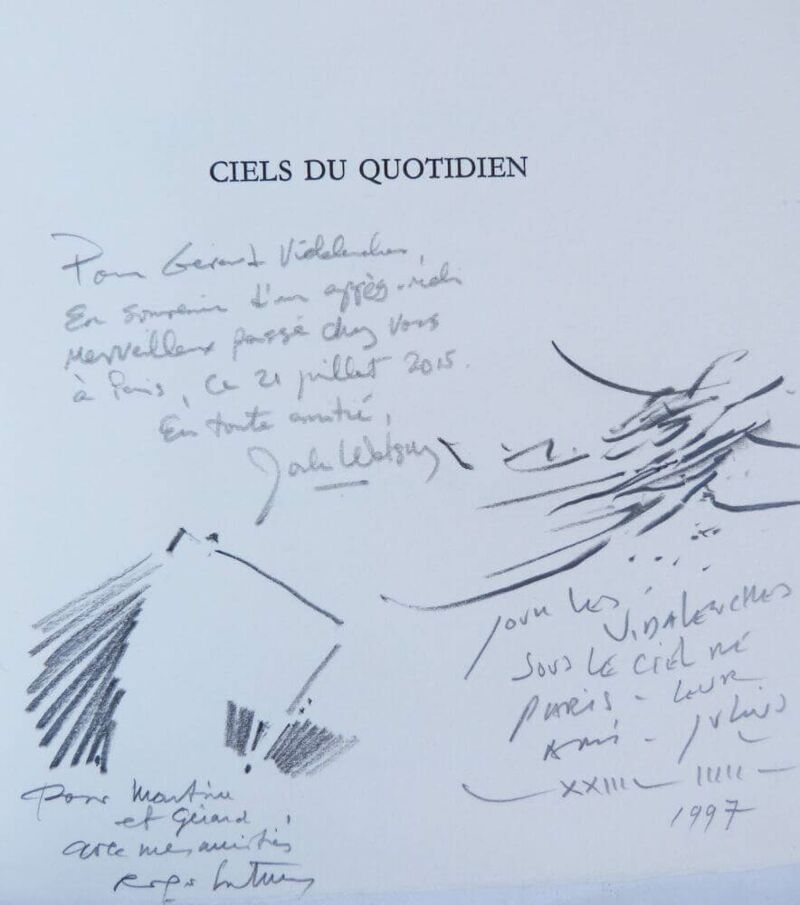 CIELS DU QUOTIDIEN
Pour Gérard Vidalenche,
En souvenir d'un après-midi
merveilleux passé chez vous
à Paris, ce 21 juillet 2015.
En toute amitié,
pour les
VIDALENCHES
SOUS LE CIEL DE
PARIS - LEUR
AMI - JULIUS
XXIII IIIII
1997
Pour Martine
et Gérard,
avec mes amitiés